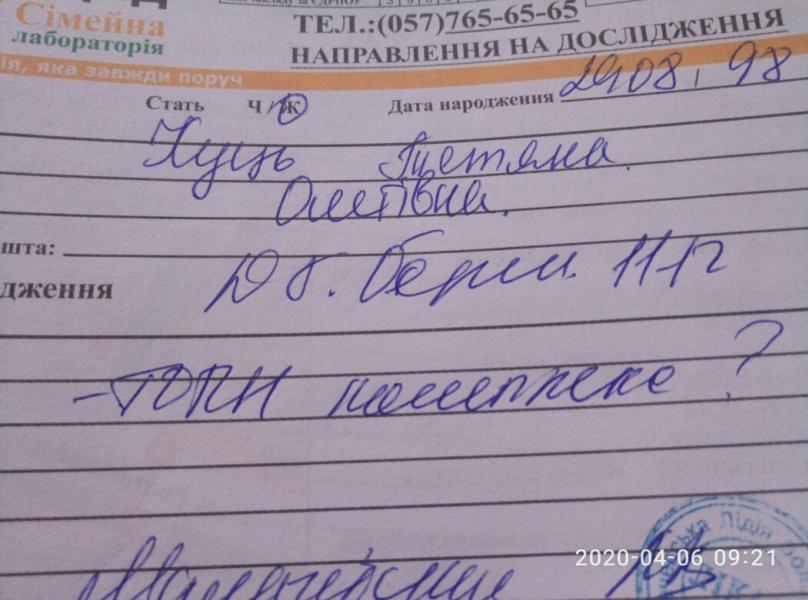 Сімейна
лабораторія
ія, яка завжди поруч
ТЕЛ.:(057)765-65-65
НАПРАВЛЕННЯ НА ДОСЛІДЖЕННЯ
Стать Ч / Ж Дата народження 29 08, 98
Куць Тетяна
Олегівна.
шта:
дження DS. Берем. 11-12
- TORCH комплекс ?
Лідія
2020-04-06 09:21